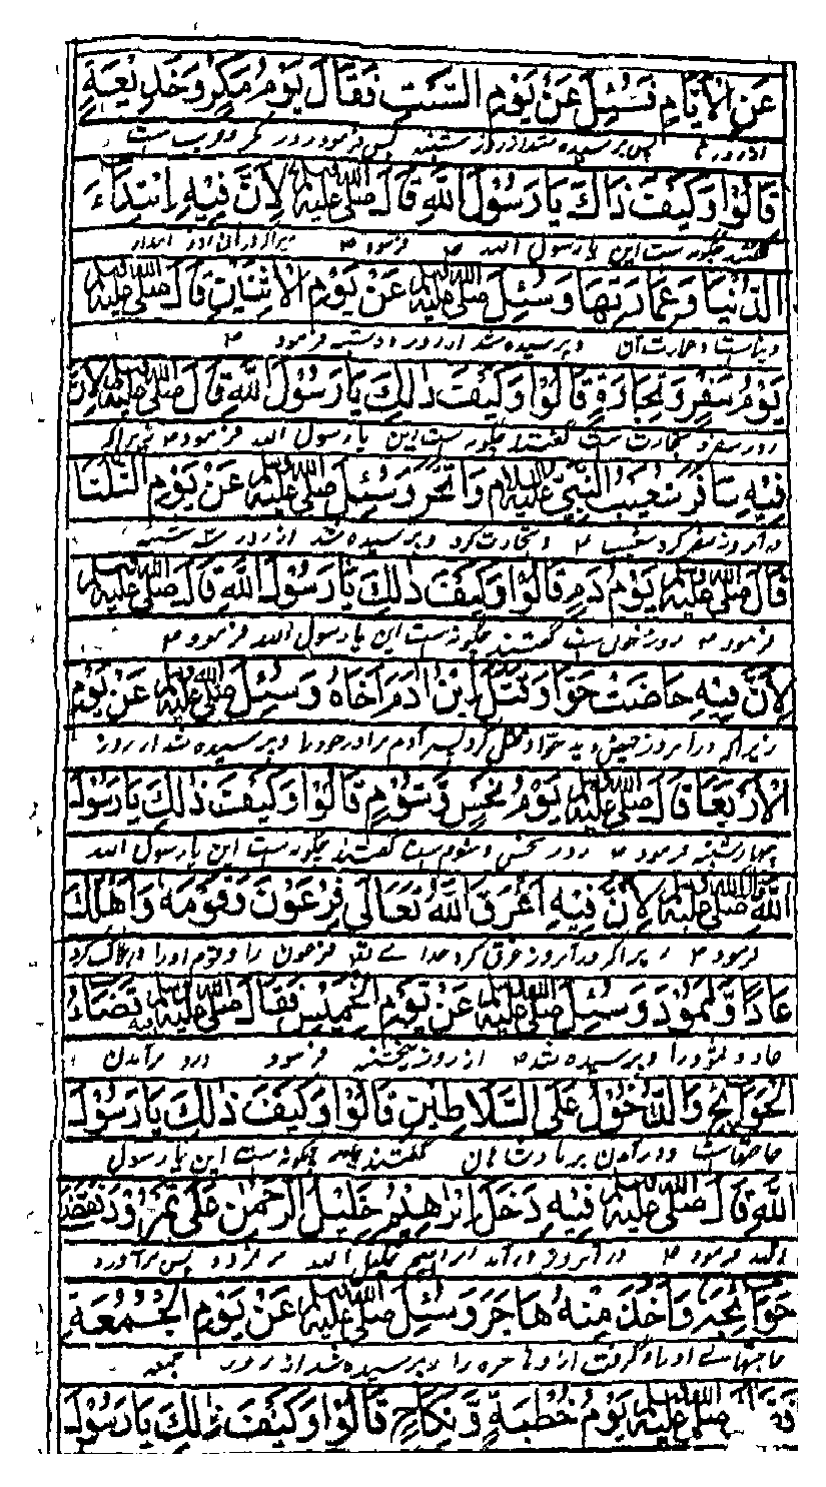 عَنِ الْاَيَّامِ فَسُئِلَ عَنْ يَوْمِ السَّبْتِ فَقَالَ يَوْمُ مَكْرٍ وَخَدِيْعَةٍ
پس پرسیده شد از روز شنبه پس فرمود روز مکر و فریب ست
قَالُوْا وَكَيْفَ ذَاكَ يَا رَسُوْلَ اللّٰهِ قَالَ صَلَّى اللّٰهُ عَلَيْهِ وَسَلَّمَ لِاَنَّ فِيْهِ ابْتِدَاءَ
گفتند چگونه ست این یا رسول الله ص فرمود ص
الدُّنْيَا وَعِمَارَتِهَا وَسُئِلَ صَلَّى اللّٰهُ عَلَيْهِ وَسَلَّمَ عَنْ يَوْمِ الْاِثْنَيْنِ قَالَ صَلَّى اللّٰهُ عَلَيْهِ وَسَلَّمَ
و عمارت آن و پرسیده شد از روز دوشنبه فرمود ص
يَوْمُ سَفَرٍ وَتِجَارَةٍ قَالُوْا وَكَيْفَ ذٰلِكَ يَا رَسُوْلَ اللّٰهِ قَالَ صَلَّى اللّٰهُ عَلَيْهِ وَسَلَّمَ لِاَنَّ
روز سفر و تجارت ست گفتند چگونه ست این یا رسول الله فرمود ص زیراکه
فِيْهِ سَافَرَ شُعَيْبُ النَّبِيُّ عَلَيْهِ السَّلَامُ وَاتَّجَرَ وَسُئِلَ صَلَّى اللّٰهُ عَلَيْهِ وَسَلَّمَ عَنْ يَوْمِ الثَّلٰثَا
در آن روز سفر کرد شعیب ع و تجارت کرد و پرسیده شد از روز سه شنبه
قَالَ صَلَّى اللّٰهُ عَلَيْهِ وَسَلَّمَ يَوْمُ دَمٍ قَالُوْا وَكَيْفَ ذٰلِكَ يَا رَسُوْلَ اللّٰهِ قَالَ صَلَّى اللّٰهُ عَلَيْهِ وَسَلَّمَ
فرمود ص روز خون ست گفتند چگونه ست این یا رسول الله فرمود ص
لِاَنَّ فِيْهِ حَاضَتْ حَوَّا وَقَتَلَ ابْنُ اٰدَمَ اَخَاهُ وَسُئِلَ صَلَّى اللّٰهُ عَلَيْهِ وَسَلَّمَ عَنْ يَوْمِ
زیراکه در آن روز حیض دید حوا و قتل کرد پسر آدم برادر خود را و پرسیده شد از روز
الْاَرْبَعَا قَالَ صَلَّى اللّٰهُ عَلَيْهِ وَسَلَّمَ يَوْمُ نَحْسٍ وَشُؤْمٍ قَالُوْا وَكَيْفَ ذٰلِكَ يَا رَسُوْلَ
چهارشنبه فرمود ص روز نحس و شوم ست گفتند چگونه ست این یا رسول الله
اللّٰهِ صَلَّى اللّٰهُ عَلَيْهِ وَسَلَّمَ لِاَنَّ فِيْهِ اَغْرَقَ اللّٰهُ تَعَالٰى فِرْعَوْنَ وَقَوْمَهٗ وَاَهْلَكَ
فرمود ص زیراکه در آن روز غرق کرد خدا فرعون را و قوم او را و هلاک کرد
عَادًا وَّثَمُوْدَ وَسُئِلَ صَلَّى اللّٰهُ عَلَيْهِ وَسَلَّمَ عَنْ يَوْمِ الْخَمِيْسِ فَقَالَ صَلَّى اللّٰهُ عَلَيْهِ وَسَلَّمَ فِيْهِ قَضَاءُ
عاد و ثمود را و پرسیده شد ص از روز پنجشنبه فرمود
الْحَوَائِجِ وَالدُّخُوْلُ عَلَى السَّلَاطِيْنِ قَالُوْا وَكَيْفَ ذٰلِكَ يَا رَسُوْلَ
و در آمدن بر گفتند چگونه ست این یا رسول
اللّٰهِ قَالَ صَلَّى اللّٰهُ عَلَيْهِ وَسَلَّمَ فِيْهِ دَخَلَ اِبْرٰهِيْمُ خَلِيْلُ الرَّحْمٰنِ عَلٰى نَمْرُوْدَ فَقَضٰى
الله فرمود ص در آن روز درآمد ابراهیم خلیل الله بر نمرود پس برآورد
حَوَائِجَهٗ وَاَخَذَ مِنْهُ هَاجَرَ وَسُئِلَ صَلَّى اللّٰهُ عَلَيْهِ وَسَلَّمَ عَنْ يَوْمِ الْجُمُعَةِ
او را و گرفت از و هاجره را و پرسیده شد از روز جمعه
صَلَّى اللّٰهُ عَلَيْهِ وَسَلَّمَ يَوْمُ خُطْبَةٍ وَّنِكَاحٍ قَالُوْا وَكَيْفَ ذٰلِكَ يَا رَسُوْلَ